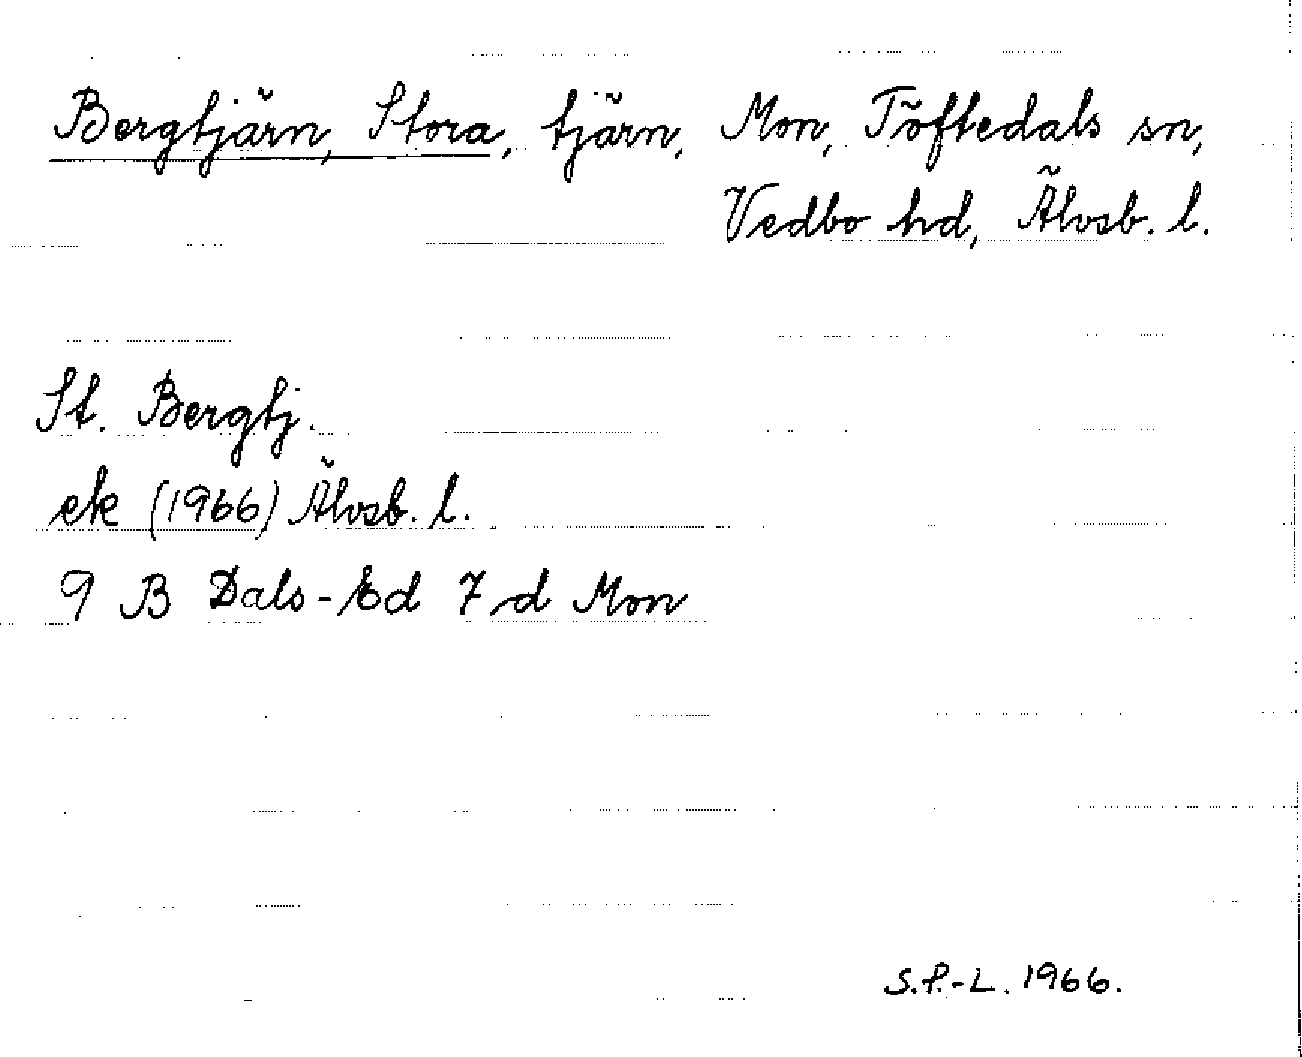 Bergtjärn, Stora, tjärn, Mon, Töftedals sn,
Vedbo hd, Älvsb. l.
St. Bergtj.
ek (1966) Älvsb. l.
9 B Dals-Ed 7 d Mon
S.P.-L. 1966.